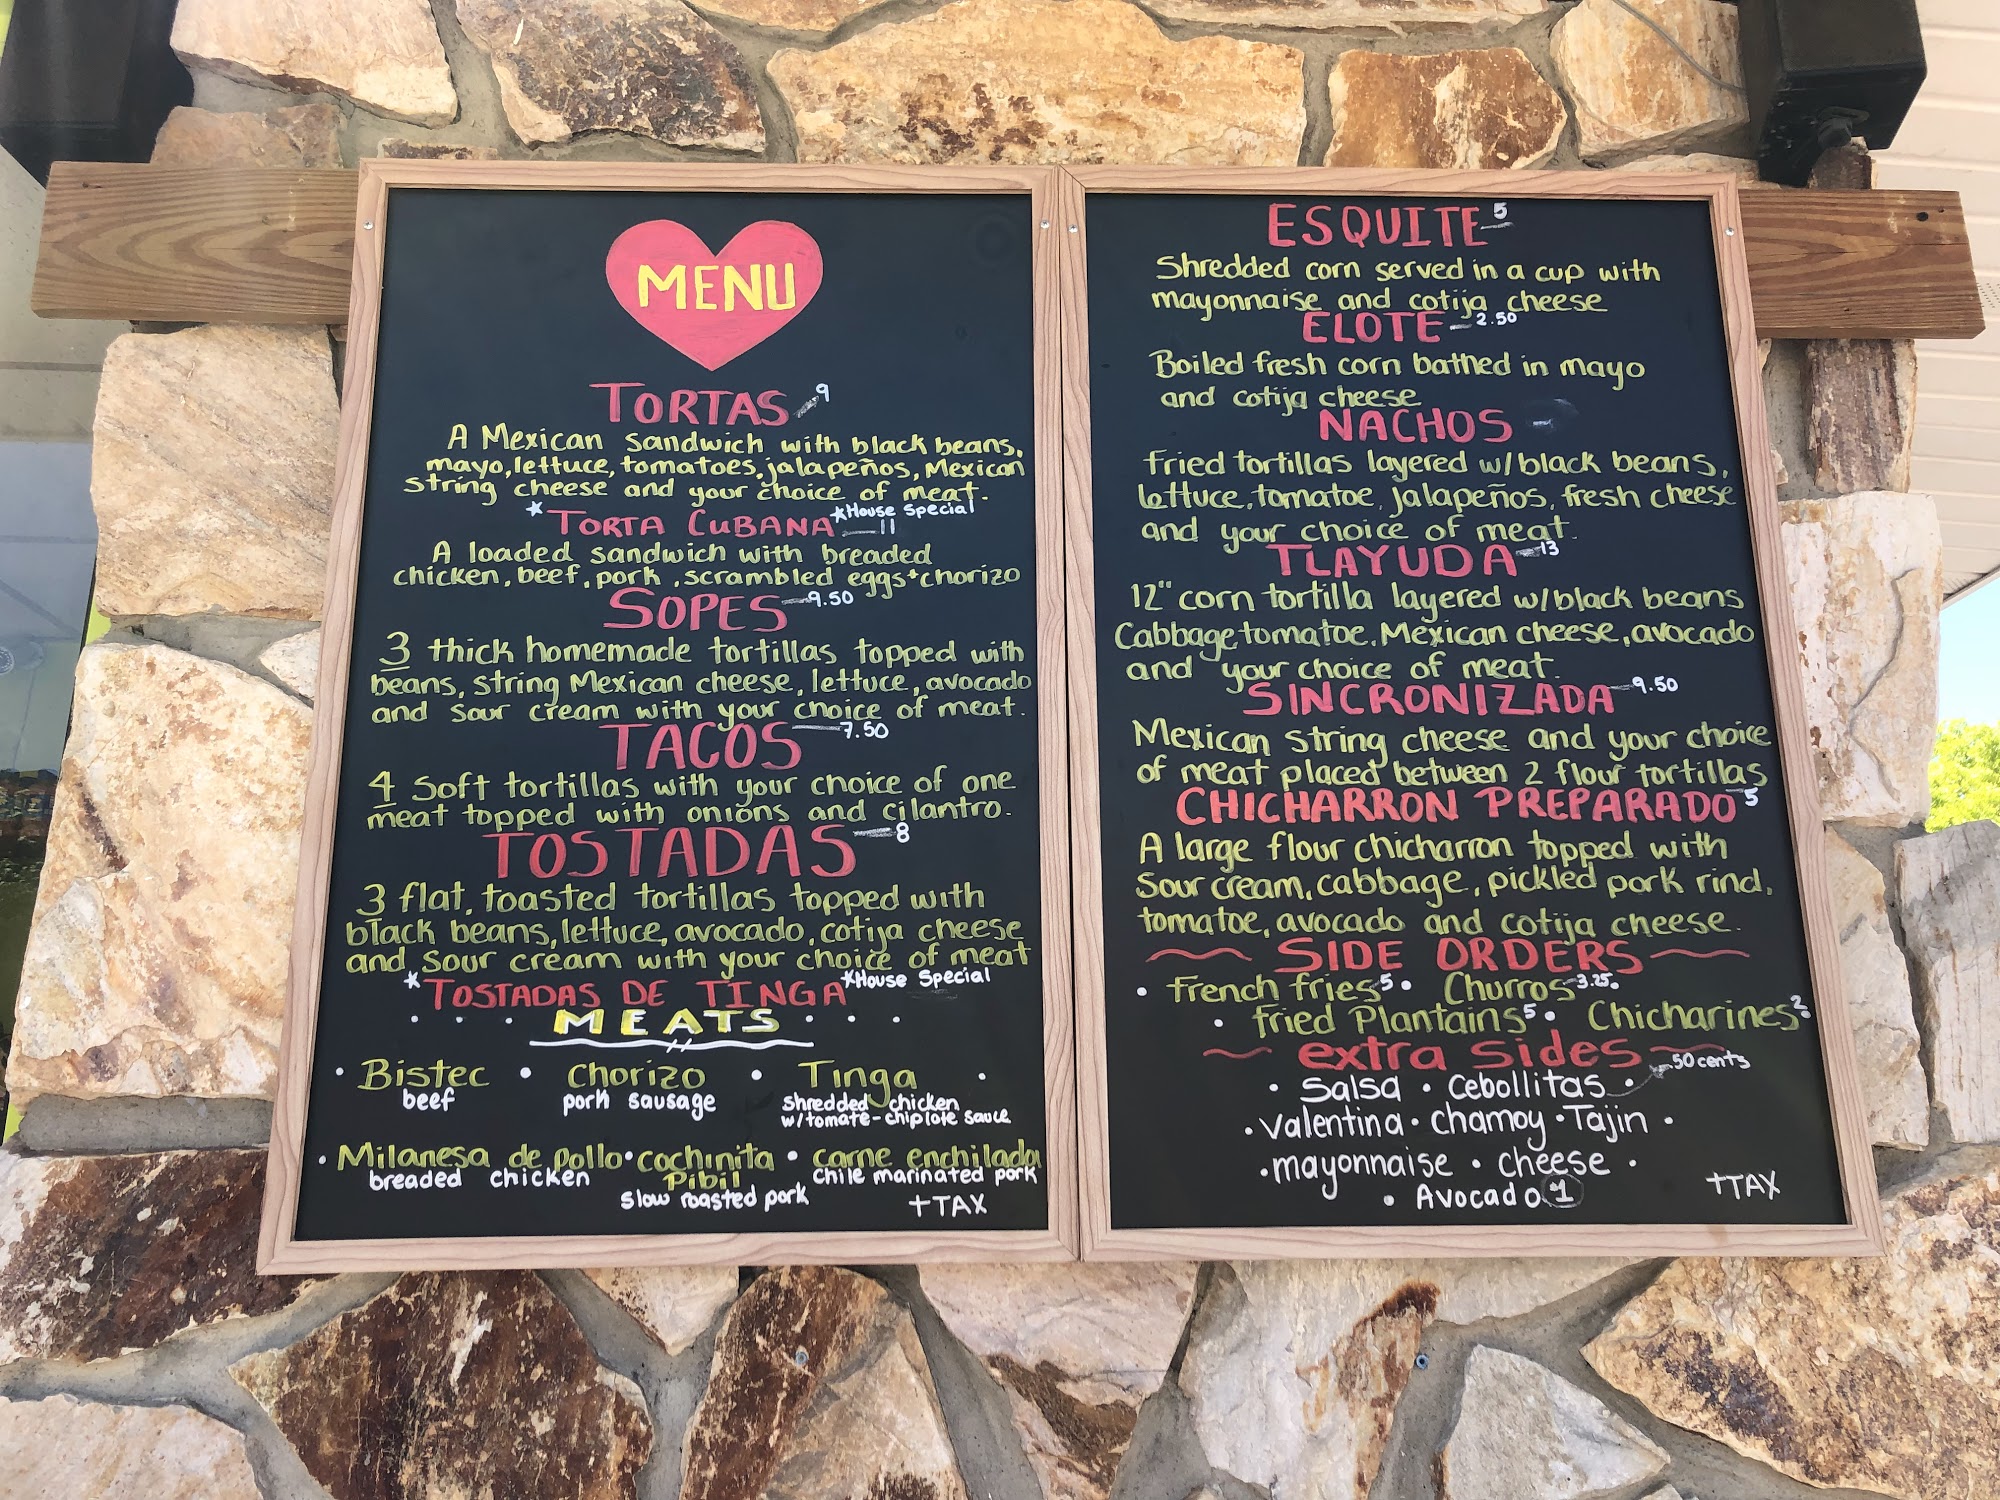 MENU
TORTAS 9
A Mexican sandwich with black beans,
mayo, lettuce, tomatoes, jalapeños, Mexican
string cheese and your choice of meat.
* TORTA CUBANA *House Special 11
A loaded sandwich with breaded
chicken, beef, pork, scrambled eggs + chorizo
SOPES 9.50
3 thick homemade tortillas topped with
beans, string Mexican cheese, lettuce, avocado
and sour cream with your choice of meat.
TACOS 7.50
4 soft tortillas with your choice of one
meat topped with onions and cilantro.
TOSTADAS 8
3 flat, toasted tortillas topped with
black beans, lettuce, avocado, cotija cheese
and sour cream with your choice of meat
* TOSTADAS DE TINGA *House Special
. . . MEATS . . .
• Bistec • chorizo • Tinga •
beef pork sausage shredded chicken
w/tomate-chiplote sauce
• Milanesa de pollo • cochinita • carne enchilada
breaded chicken Pibil chile marinated pork
slow roasted pork
+TAX
ESQUITE 5
Shredded corn served in a cup with
mayonnaise and cotija cheese
ELOTE 2.50
Boiled fresh corn bathed in mayo
and cotija cheese
NACHOS
fried tortillas layered w/black beans,
lettuce, tomatoe, jalapeños, fresh cheese
and your choice of meat.
TLAYUDA 13
12" corn tortilla layered w/black beans
Cabbage tomatoe, Mexican cheese, avocado
and your choice of meat.
SINCRONIZADA 9.50
Mexican string cheese and your choice
of meat placed between 2 flour tortillas
CHICHARRON PREPARADO 5
A large flour chicharron topped with
sour cream, cabbage, pickled pork rind,
tomatoe, avocado and cotija cheese.
SIDE ORDERS
• french fries 5 • Churros 3.25 •
• fried Plantains 5 • Chicharines 2
extra sides .50 cents
• Salsa • Cebollitas •
• valentina • chamoy • Tajin •
• mayonnaise • cheese •
• Avocado $1
+TAX